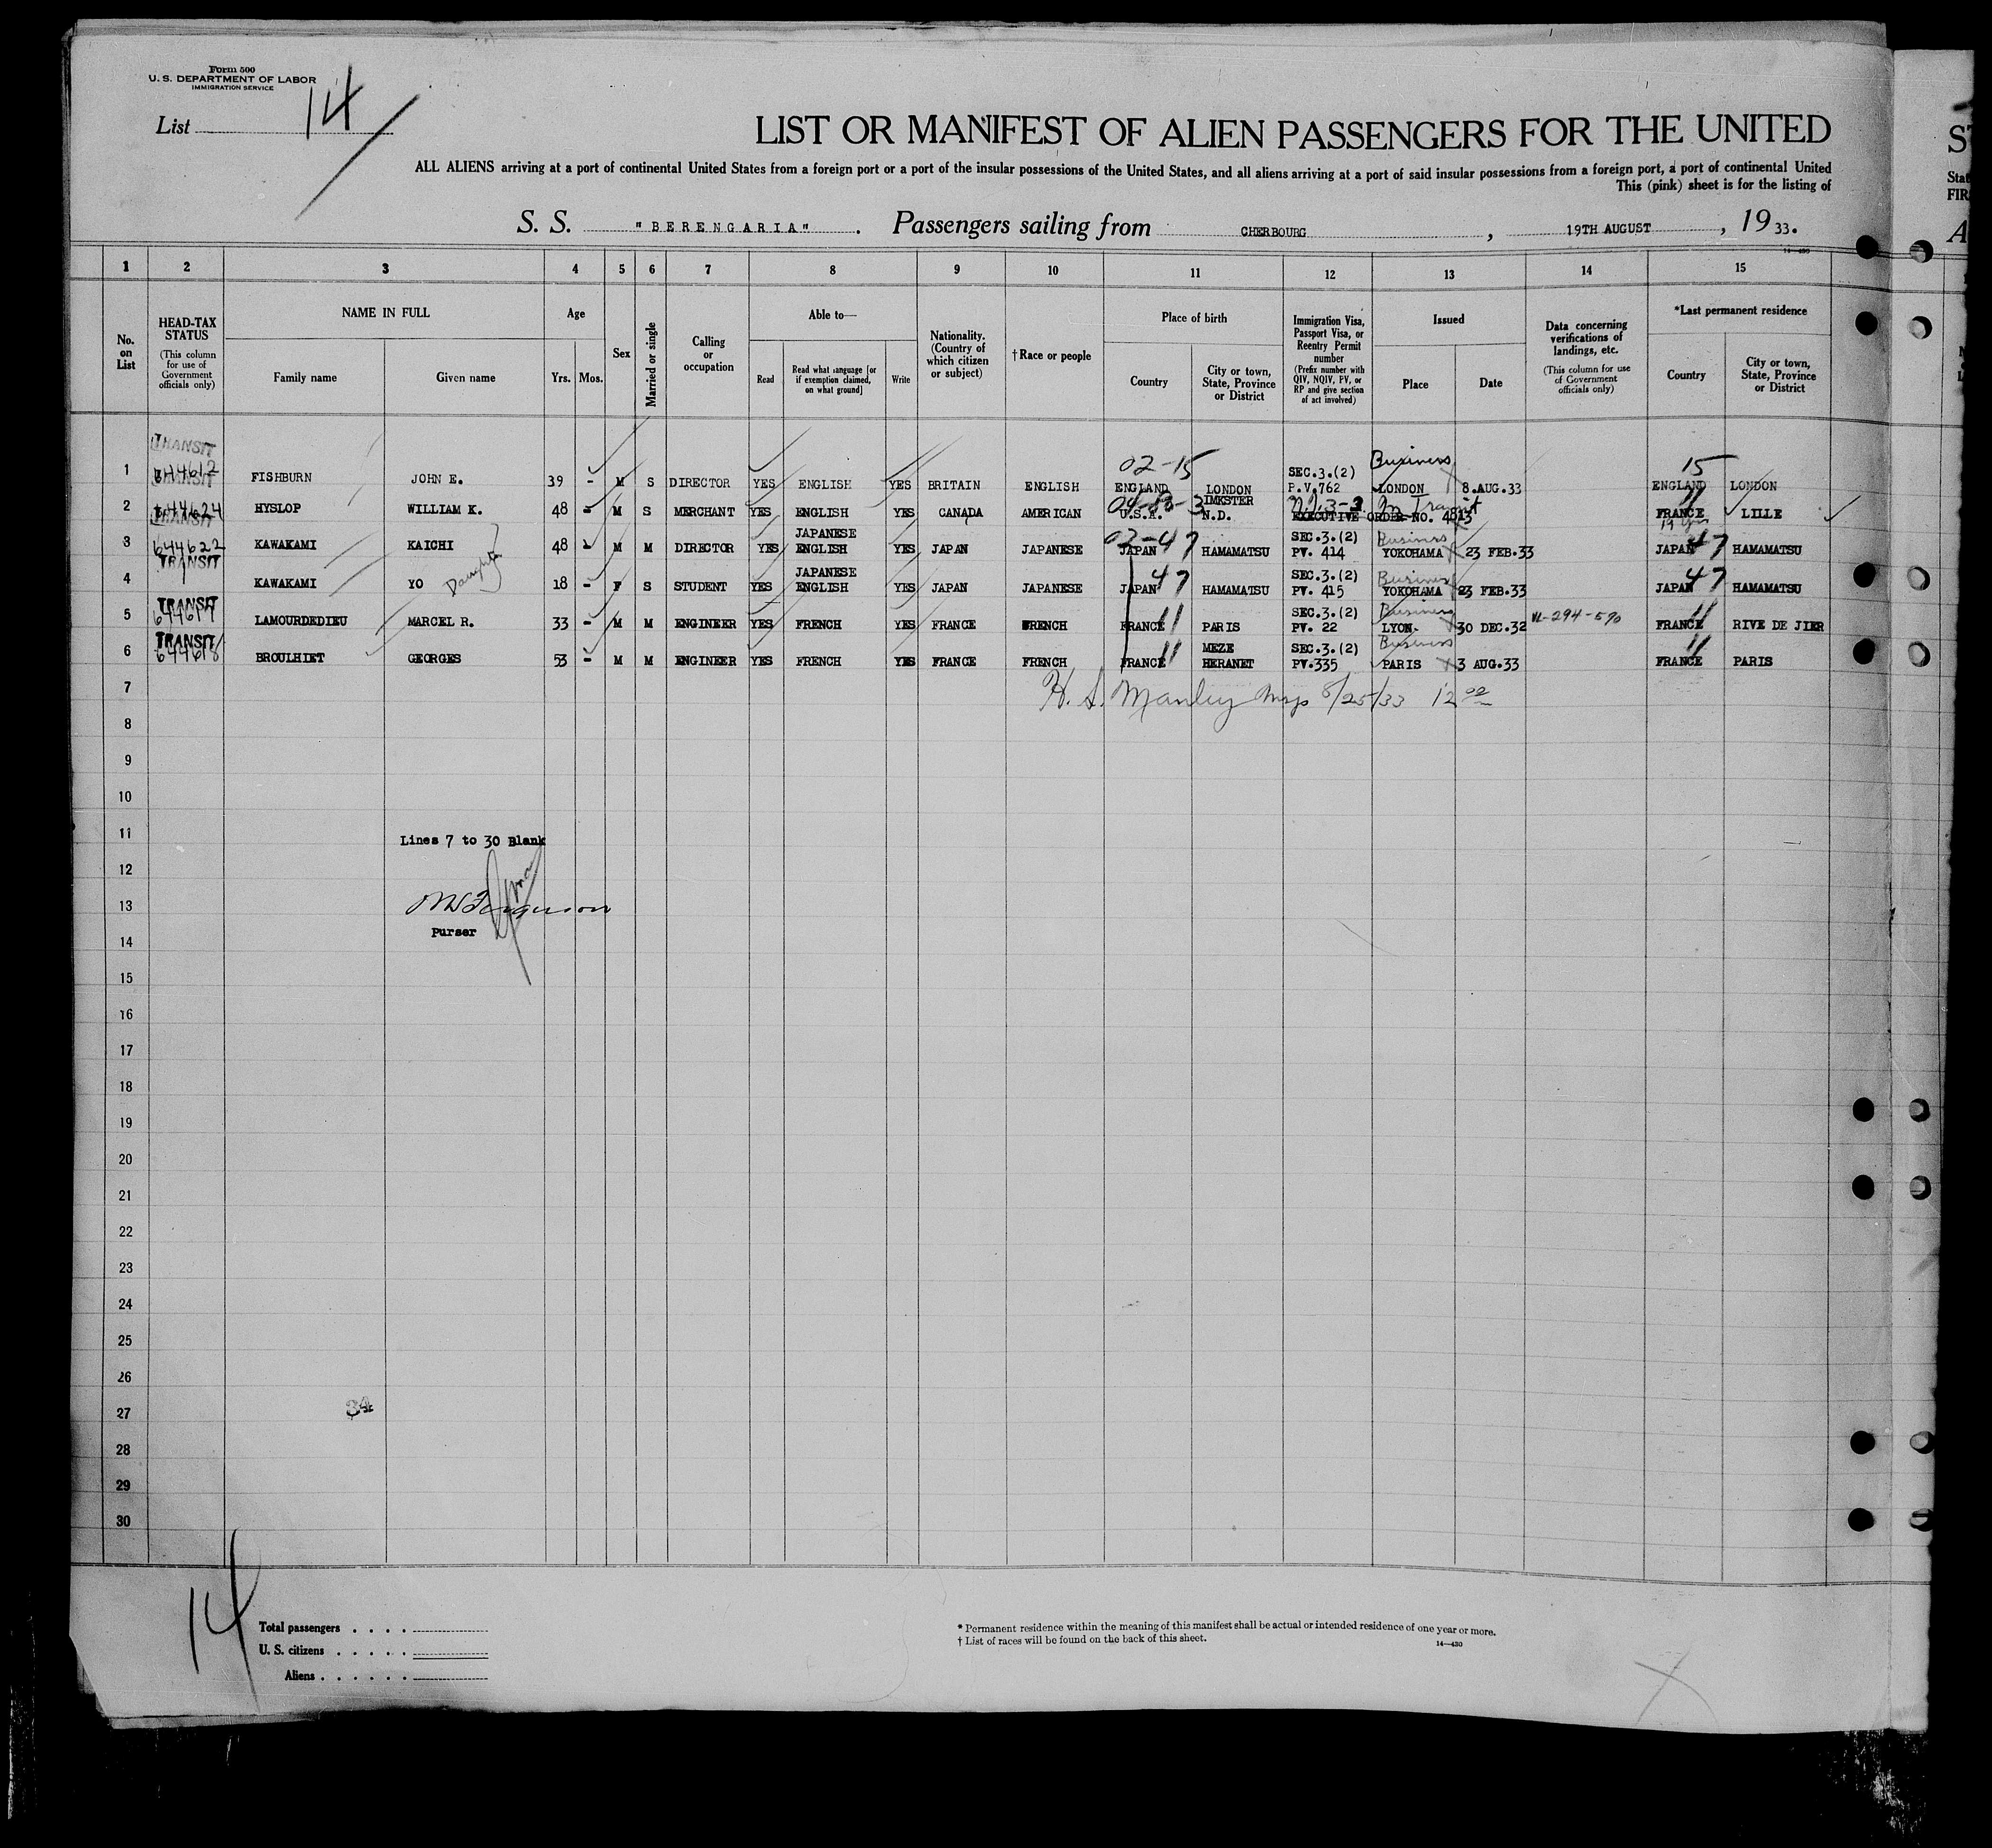 Form 500
U. S. DEPARTMENT OF LABOR
IMMIGRATION SERVICE
List 14
LIST OR MANIFEST OF ALIEN PASSENGERS FOR THE UNITED
ALL ALIENS arriving at a port of continental United States from a foreign port or a port of the insular possessions of the United States, and all aliens arriving at a port of said insular possessions from a foreign port, a port of continental United
This (pink) sheet is for the listing of
S. S. "BERENGARIA". Passengers sailing from CHERBOURG, 19TH AUGUST, 1933.
14—430
1 2 3 4 5 6 7 8 9 10 11 12 13 14 15
No. on List
HEAD-TAX STATUS (This column for use of Government officials only)
NAME IN FULL
Family name Given name
Age
Yrs. Mos.
Sex
Married or single
Calling or occupation
Able to—
Read
Read what language [or if exemption claimed, on what ground]
Write
Nationality. (Country of which citizen or subject)
†Race or people
Place of birth
Country
City or town, State, Province or District
Immigration Visa, Passport Visa, or Reentry Permit number (Prefix number with QIV, NQIV, PV, or RP and give section of act involved)
Issued
Place Date
Data concerning verifications of landings, etc. (This column for use of Government officials only)
*Last permanent residence
Country
City or town, State, Province or District
TRANSIT
02-15 Business 15
1 644612 FISHBURN JOHN E. 39 - M S DIRECTOR YES ENGLISH YES BRITAIN ENGLISH ENGLAND LONDON SEC.3.(2) P.V.762 LONDON 8.AUG.33 ENGLAND LONDON
TRANSIT
2 644624 HYSLOP WILLIAM K. 48 - M S MERCHANT YES ENGLISH YES CANADA AMERICAN U.S.A. IMKSTER N.D. EXECUTIVE ORDER NO. 4813 In Transit FRANCE 11 LILLE
TRANSIT
3 644622 KAWAKAMI KAICHI 48 - M M DIRECTOR YES JAPANESE ENGLISH YES JAPAN JAPANESE 02-47 JAPAN HAMAMATSU SEC.3.(2) PV. 414 Business YOKOHAMA 23 FEB.33 JAPAN 47 HAMAMATSU
TRANSIT
4 KAWAKAMI YO Daughter 18 - F S STUDENT YES JAPANESE ENGLISH YES JAPAN JAPANESE JAPAN 47 HAMAMATSU SEC.3.(2) PV. 415 Business YOKOHAMA 23 FEB.33 JAPAN 47 HAMAMATSU
TRANSIT
5 644617 LAMOURDEDIEU MARCEL R. 33 - M M ENGINEER YES FRENCH YES FRANCE FRENCH FRANCE 11 PARIS SEC.3.(2) PV. 22 Business LYON. 30 DEC.32 VL-294-590 FRANCE 11 RIVE DE JIER
TRANSIT
6 644618 BROULHIET GEORGES 53 - M M ENGINEER YES FRENCH YES FRANCE FRENCH FRANCE 11 MEZE HERANET SEC.3.(2) PV.335 Business PARIS 3 AUG.33 FRANCE 11 PARIS
7 H. S. Manley Insp 8/25/33 12 00
8
9
10
11 Lines 7 to 30 Blank
12
13 Ferguson
Purser
14
15
16
17
18
19
20
21
22
23
24
25
26
27 34
28
29
30
14
Total passengers
U. S. citizens
Aliens
* Permanent residence within the meaning of this manifest shall be actual or intended residence of one year or more.
† List of races will be found on the back of this sheet.
14—430